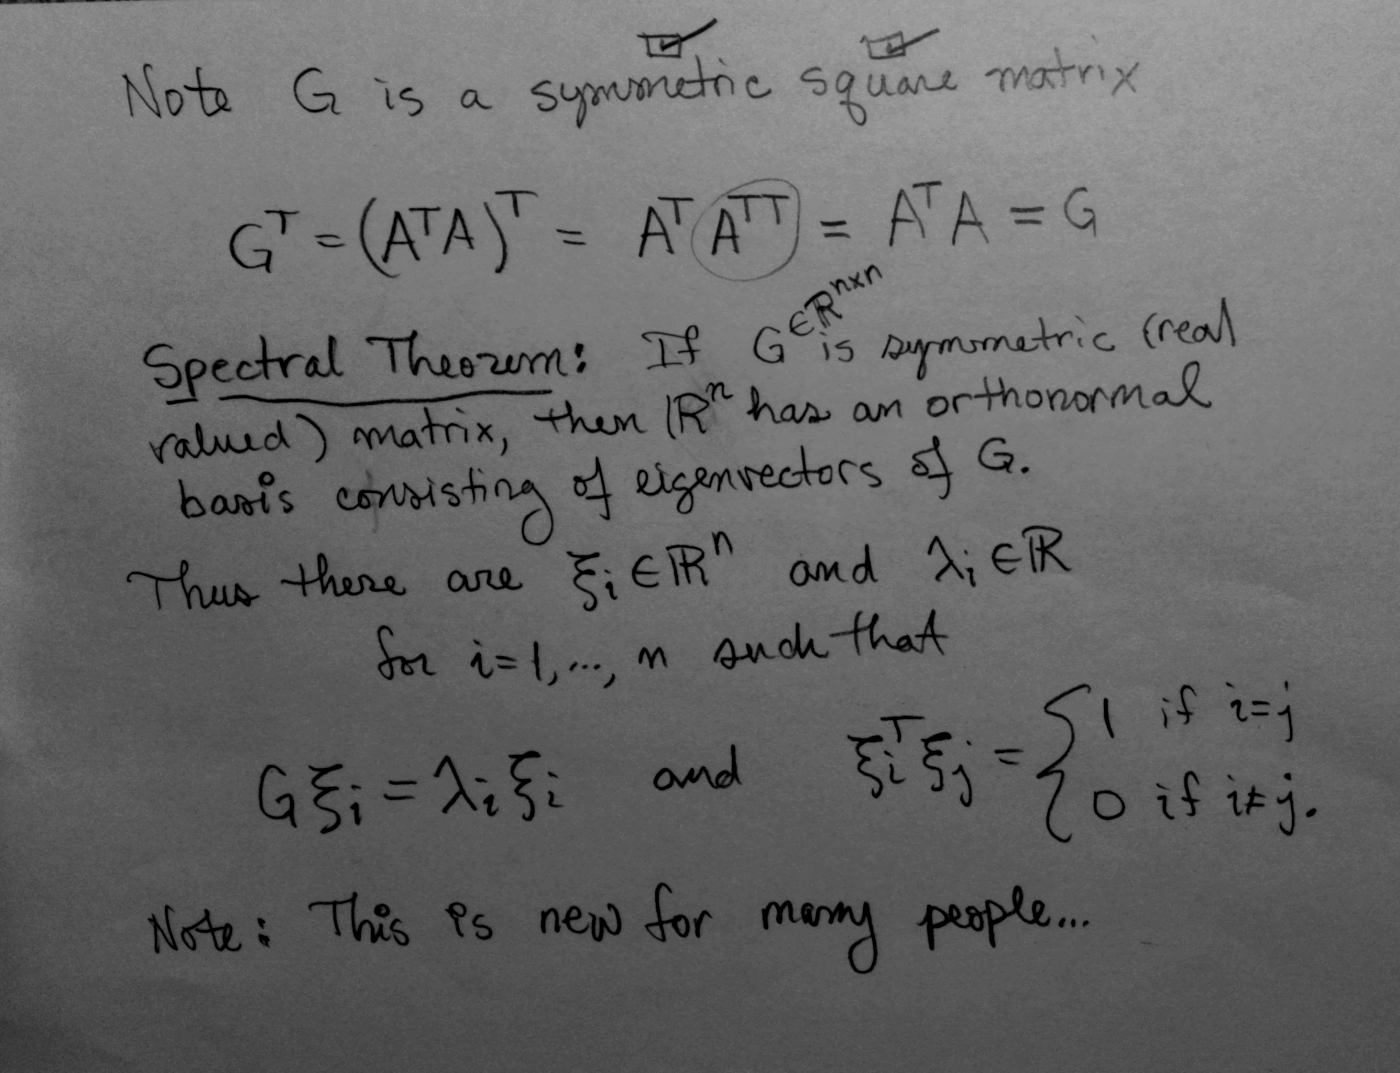 Note G is a symmetric square matrix
Gᵀ = (AᵀA)ᵀ = Aᵀ Aᵀᵀ = AᵀA = G
Spectral Theorem: If G ∈ ℝⁿˣⁿ is symmetric (real
valued) matrix, then ℝⁿ has an orthonormal
basis consisting of eigenvectors of G.
Thus there are ξᵢ ∈ ℝⁿ and λᵢ ∈ ℝ
for i=1,..., n such that
Gξᵢ = λᵢξᵢ and ξᵢᵀξⱼ = { 1 if i=j
0 if i≠j.
Note: This is new for many people...